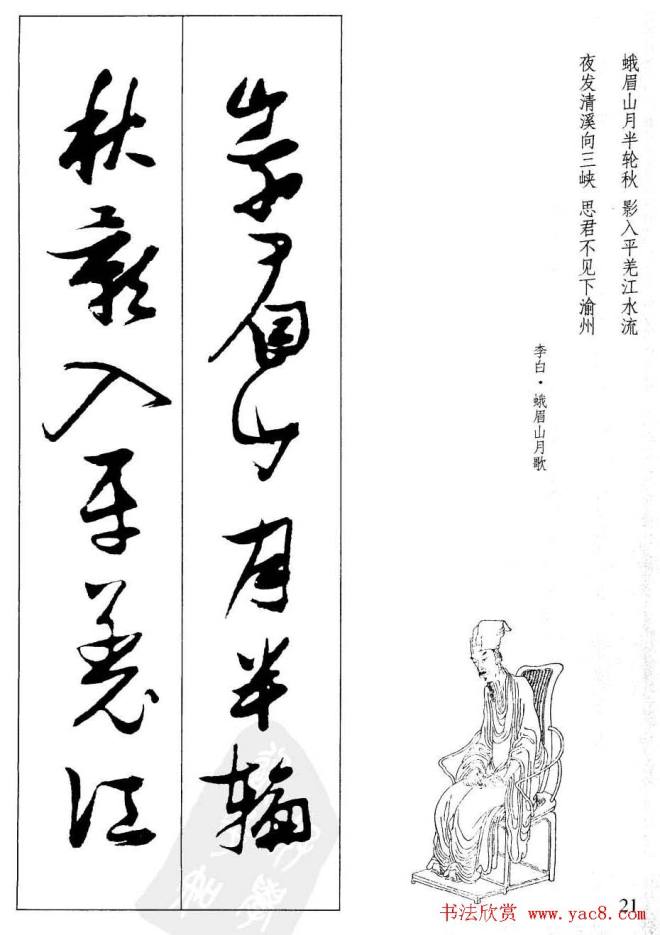 蛾眉山月半轮秋 影入平羌江水流
夜发清溪向三峡 思君不见下渝州
李白·蛾眉山月歌
峩眉山月半輪
秋影入平羌江
21
书法欣赏 www.yac8.com